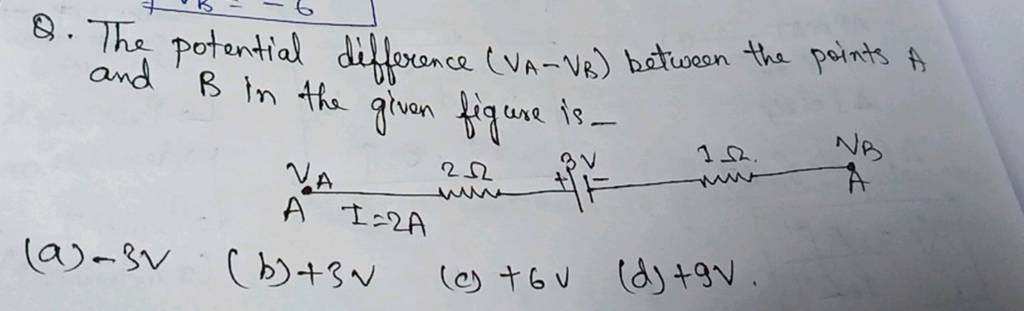 VB = -6
Q. The potential difference (VA-VB) between the points A
and B in the given figure is_
VA 2Ω 3V 1Ω. VB
+ -
A I=2A A
(a)-3V (b)+3V (c) +6V (d)+9V.